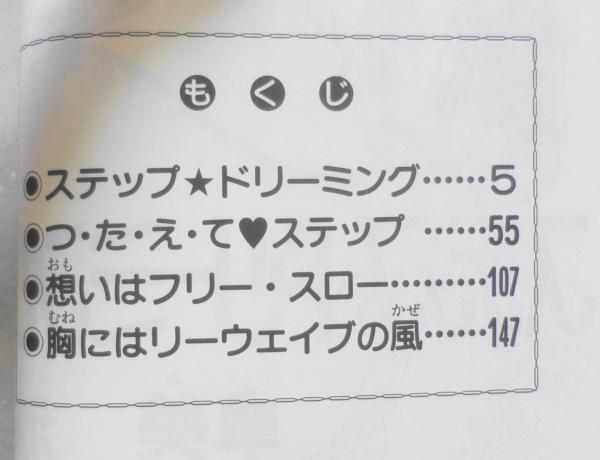 もくじ
◉ステップ★ドリーミング……5
◉つ・た・え・て♥ステップ ……55
おも
◉想いはフリー・スロー………107
むね かぜ
◉胸にはリーウェイブの風……147